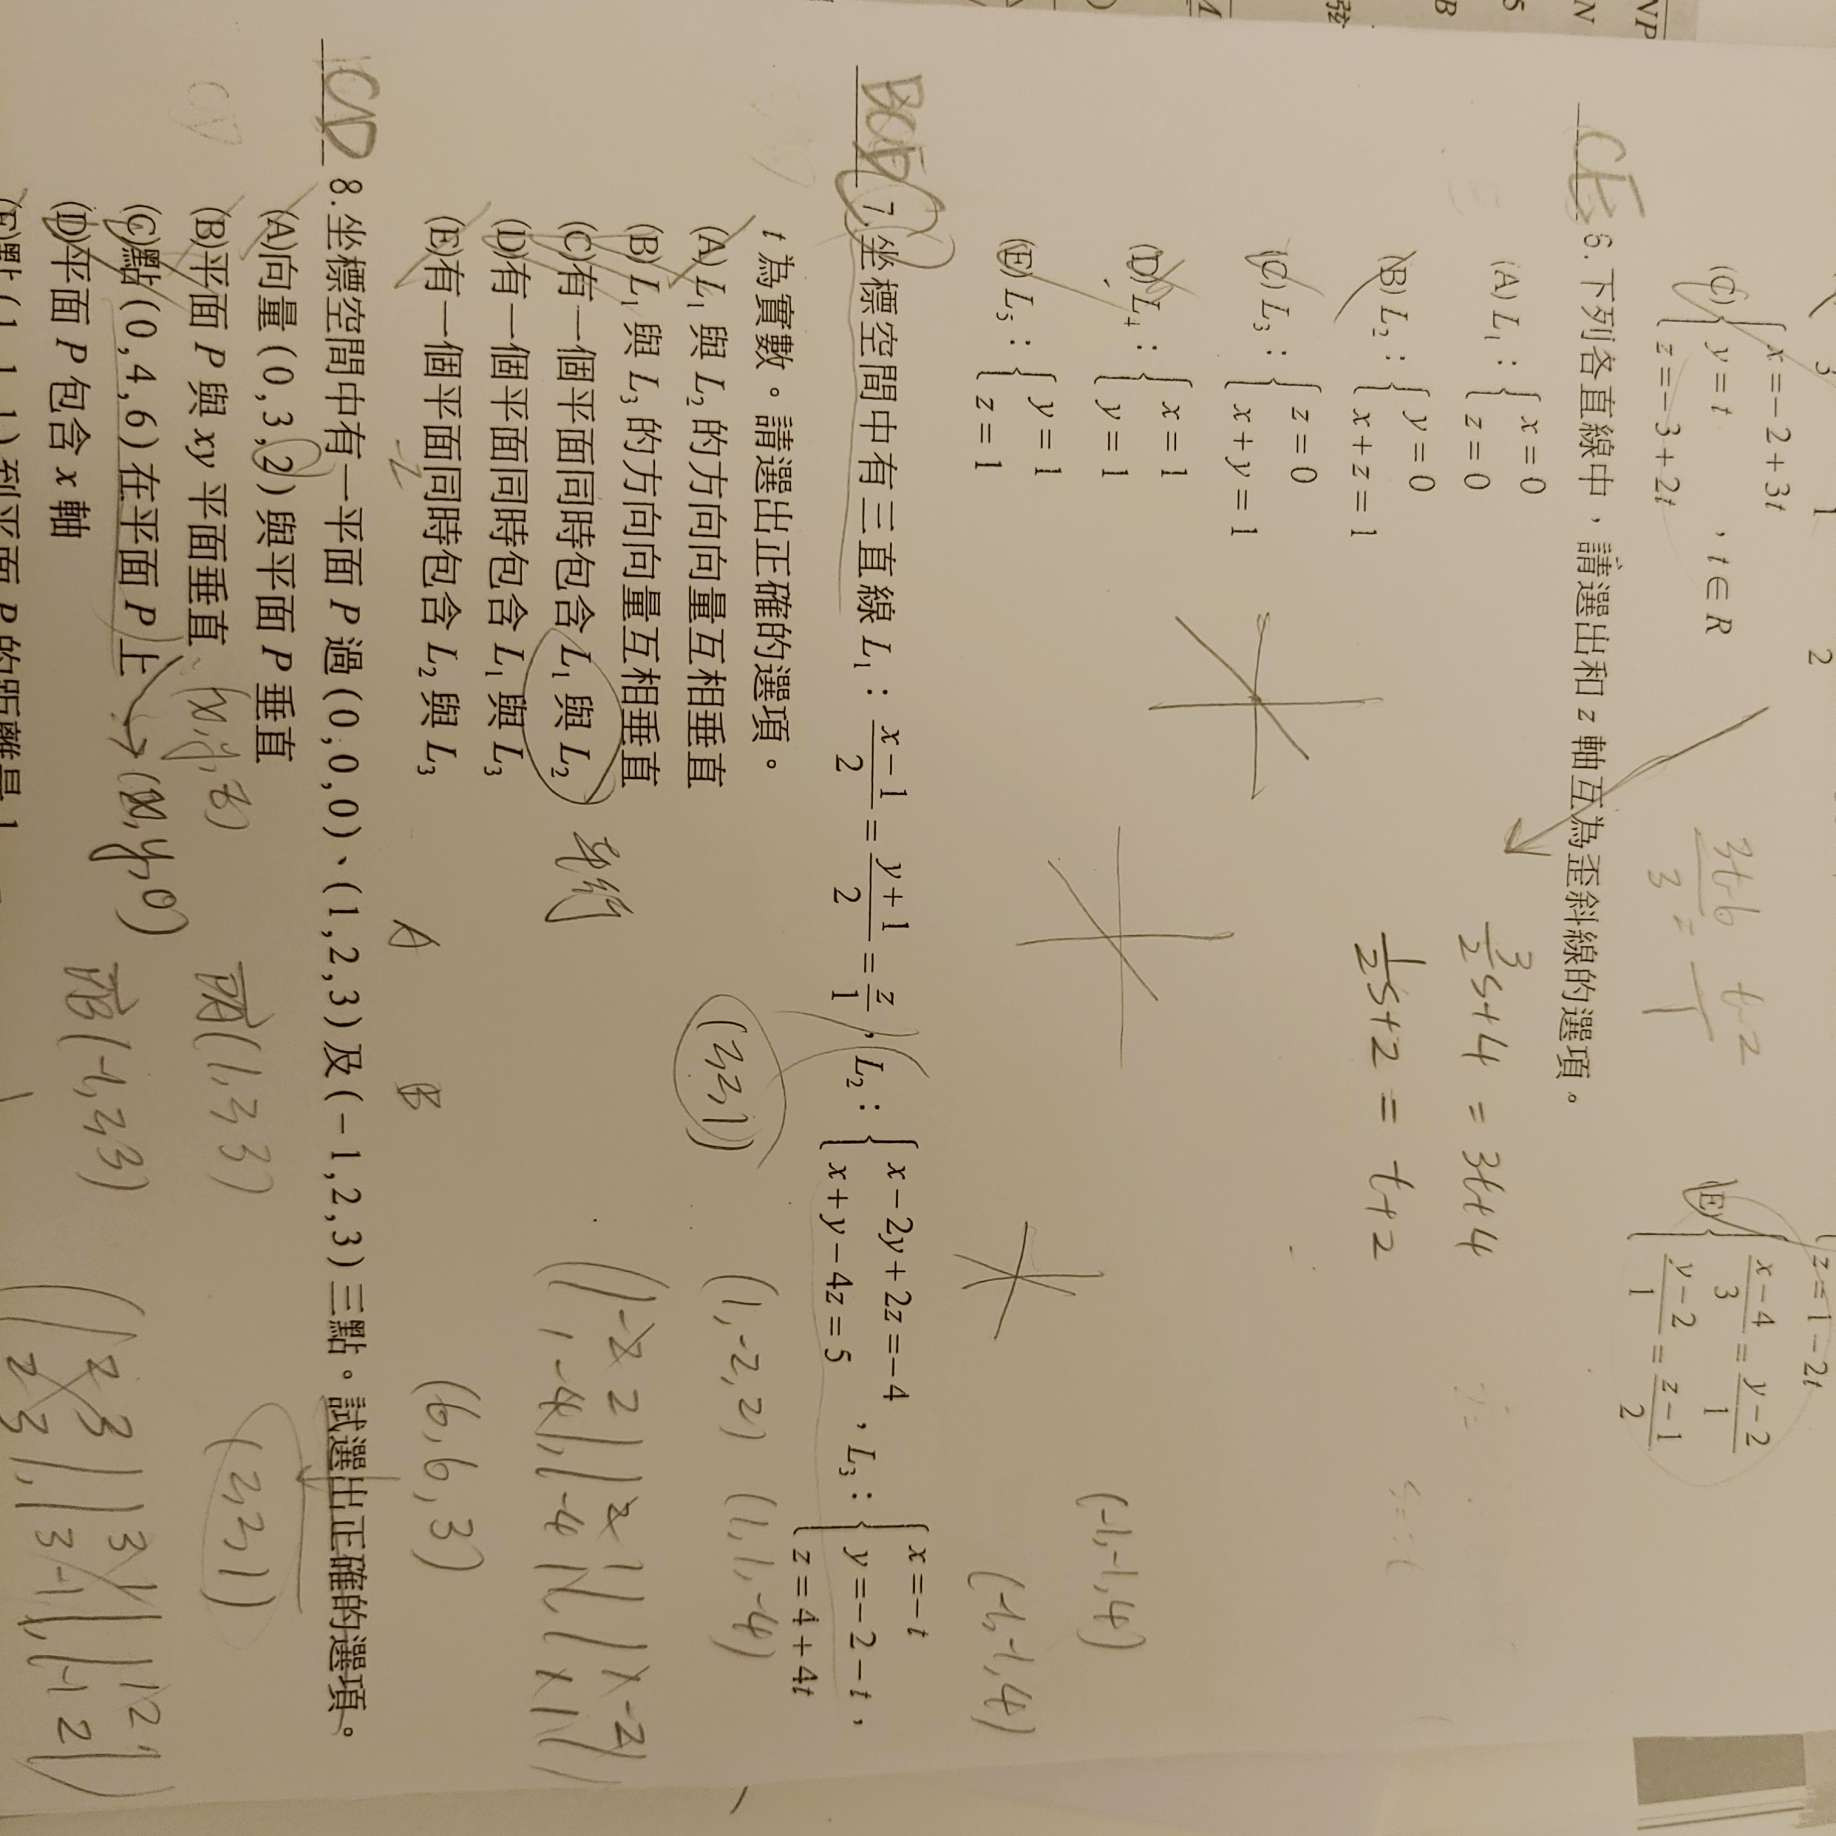 NP
N
S
B
弦
3 1 2
(C) { x=-2+3t
y=t , t∈R
z=-3+2t
z=1-2t
(E) { (x-4)/3 = (y-2)/1
(y-2)/1 = (z-1)/2
3/2 s+4 = 3t+4
1/2 s+2 = t+2
CE 6. 下列各直線中，請選出和 z 軸互為歪斜線的選項。
(A) L₁：{ x=0
z=0
(B) L₂：{ y=0
x+z=1
(C) L₃：{ z=0
x+y=1
(D) L₄：{ x=1
y=1
(E) L₅：{ y=1
z=1
(-1,-1,4)
(-1,-1,4)
7. 坐標空間中有三直線 L₁：(x-1)/2 = (y+1)/2 = z/1，L₂：{ x-2y+2z=-4
x+y-4z=5 ，L₃：{ x=-t
y=-2-t ，
z=4+4t
t 為實數。請選出正確的選項。
(A) L₁ 與 L₂ 的方向向量互相垂直
(B) L₁ 與 L₃ 的方向向量互相垂直
(C) 有一個平面同時包含 L₁ 與 L₂
(D) 有一個平面同時包含 L₁ 與 L₃
(E) 有一個平面同時包含 L₂ 與 L₃
(2,2,1)
(1,-2,2) (1,1,-4)
(6,6,3)
A B
CD 8. 坐標空間中有一平面 P 過 (0,0,0)、(1,2,3) 及 (-1,2,3) 三點。試選出正確的選項。
(A) 向量 (0,3,2) 與平面 P 垂直
(B) 平面 P 與 xy 平面垂直
(C) 點 (0,4,6) 在平面 P 上
(D) 平面 P 包含 x 軸
(E) 點 (1,1,1) 到平面 P 的距離是 1
-2
(x,y,z)
(x,y,0)
(1,2,3)
(-1,2,3)
(2,2,1)